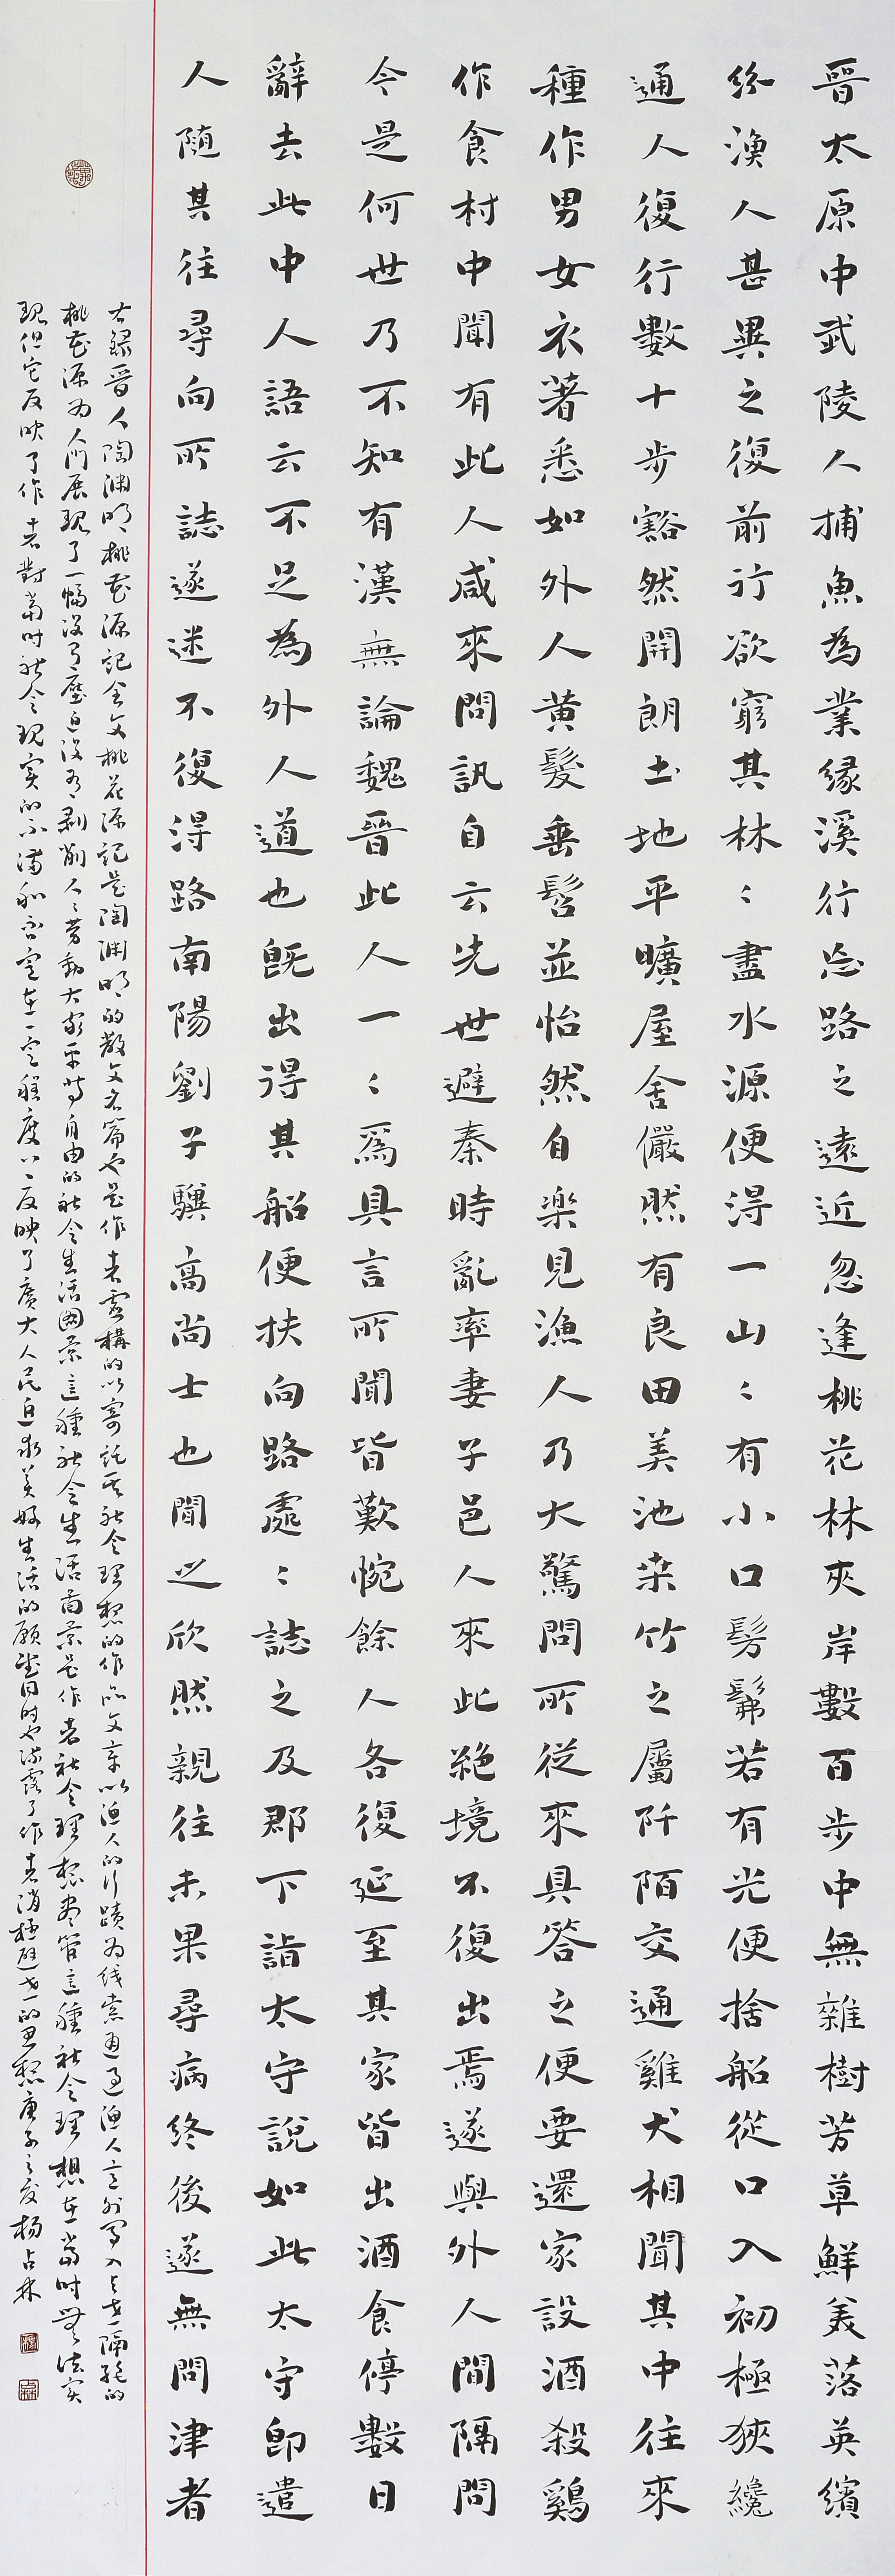 晉太原中武陵人捕魚為業緣溪行忘路之遠近忽逢桃花林夾岸數百步中無雜樹芳草鮮美落英繽
紛漁人甚異之復前行欲窮其林〻盡水源便得一山〻有小口髣髴若有光便捨船從口入初極狹纔
通人復行數十步豁然開朗土地平曠屋舍儼然有良田美池桒竹之屬阡陌交通雞犬相聞其中往來
種作男女衣著悉如外人黃髮垂髫並怡然自楽見漁人乃大驚問所從來具答之便要還家設酒殺鷄
作食村中聞有此人咸來問訊自云先世避秦時亂率妻子邑人來此絕境不復出焉遂與外人間隔問
今是何世乃不知有漢無論魏晉此人一〻爲具言所聞皆歎惋餘人各復延至其家皆出酒食停數日
辭去此中人語云不足為外人道也既出得其船便扶向路處〻誌之及郡下詣太守說如此太守即遣
人隨其往尋向所誌遂迷不復得路南陽劉子驥高尚士也聞之欣然親往未果尋病終後遂無問津者
右錄晉人陶渊明桃花源記全文桃花源記是陶渊明的散文名篇也是作者虛構的以寄託其社会理想的作品文章以漁人的行蹟为线索通過漁人言外写入与世隔絕的
桃花源为人们展現了一幅没有壓迫没有剥削人〻劳動大家平等自由的社会生活图景這種社会生活圖景是作者社会理想尽管這種社会理想在當时無法实
現但它反映了作者對當时社会現实的不满和否定在一定程度上反映了廣大人民追求美好生活的願望同时也流露了作者消極避世的思想庚子之夏楊占林